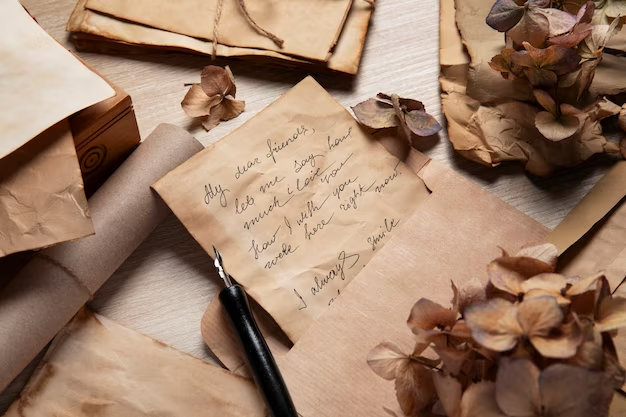 My dear friends,
lets me say how
much i love you
How I wish you
were here right now.
I always smile